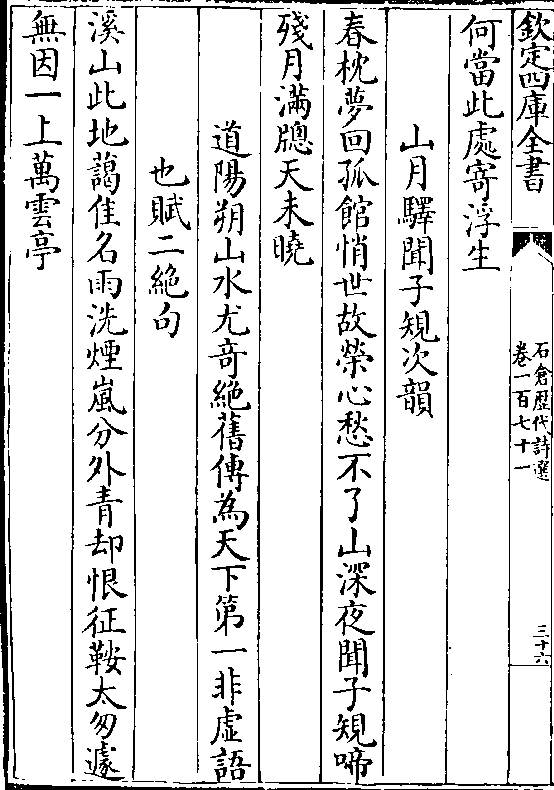 欽定四庫全書
石倉歷代詩選
卷一百七十一
三十六
何當此處寄浮生
山月驛聞子規次韻
春枕夢回孤館悄世故榮心愁不了山深夜聞子規啼
殘月滿牕天未曉
道陽朔山水尤竒絶舊傳為天下第一非虛語
也賦二絶句
溪山此地藹佳名雨洗煙嵐分外青却恨征鞍太匆遽
無因一上萬雲亭